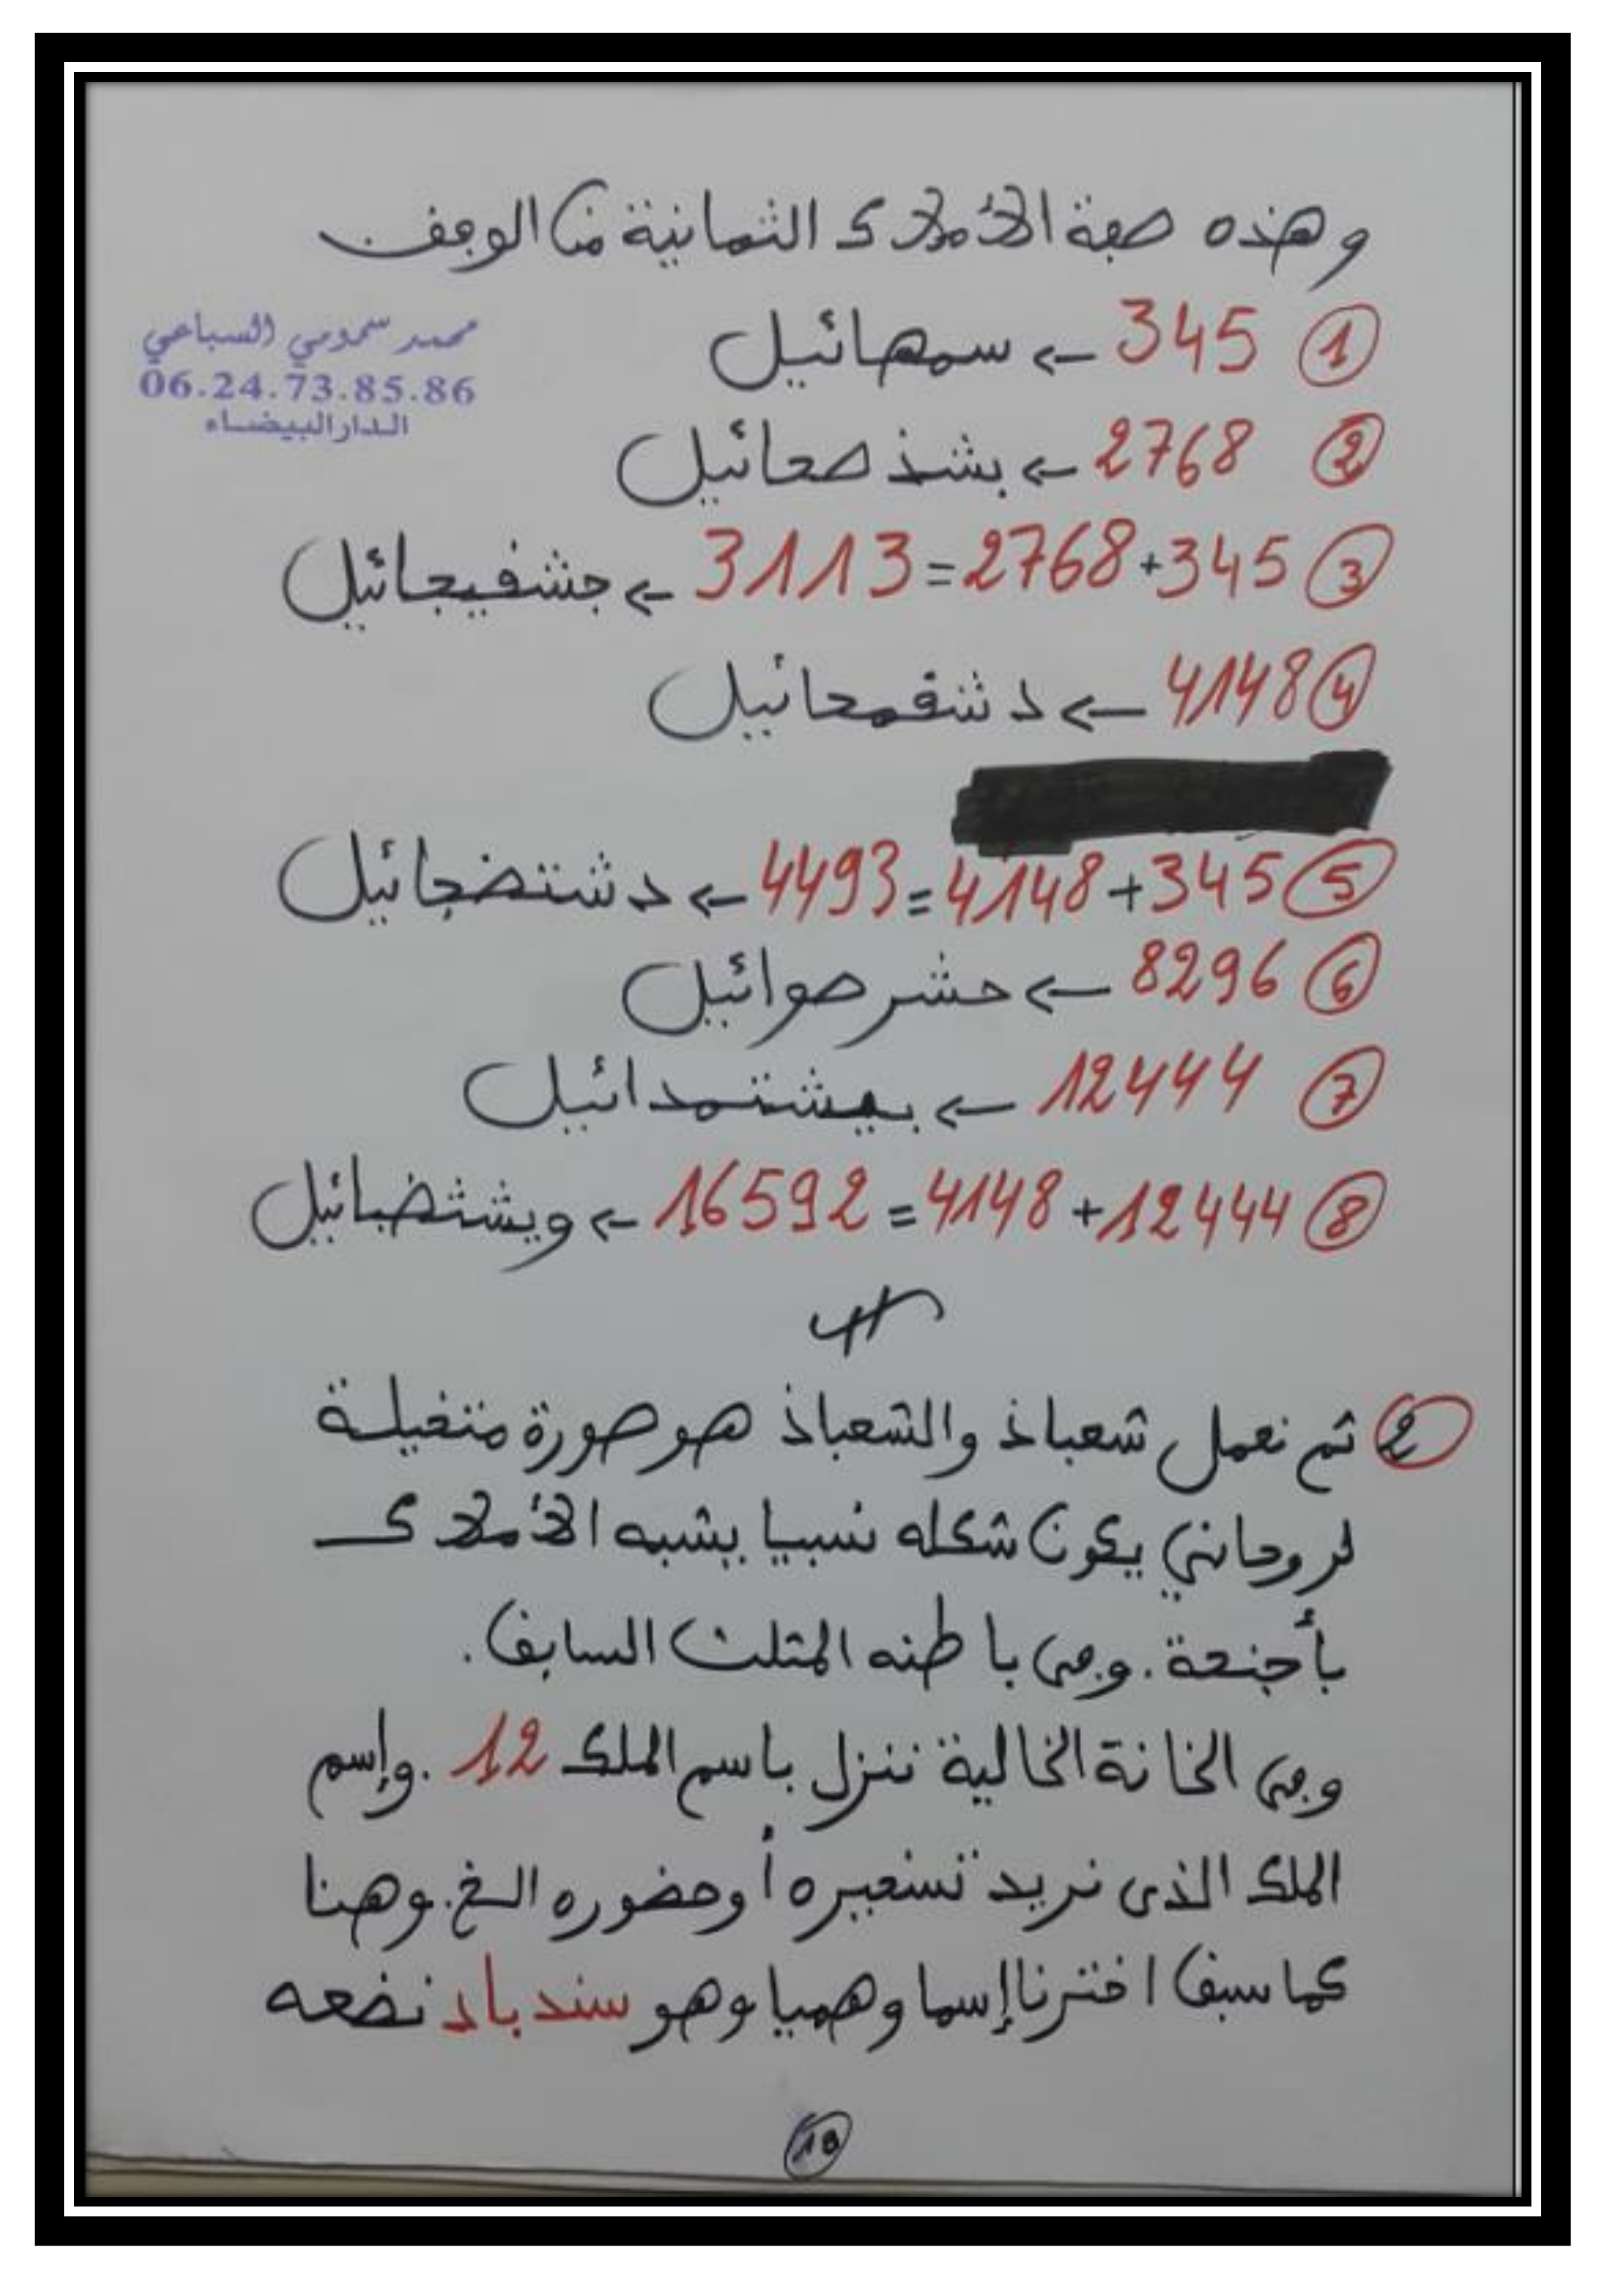 وهذه صفة الأملاك الثمانية من الوفف
محمد سموني السباعي
06.24.73.85.86
الدار البيضاء
1 345 ← سمهائيل
2 2768 ← بشذ صحائيل
3 345+2768=3113 ← جشفيجائيل
4 4148 ← د شقمحائيل
5 345+4148=4493 ← د شتضجائيل
6 8296 ← حشر صوائيل
7 12444 ← بيشتمدائيل
8 12444+4148=16592 ← ويشثضبائيل
2 ثم نعمل شعباذ والشعباذ هو صورة متخيلة
لروحاني يكون شكله نسبيا يشبه الأملاك
بأجنحة. وفي باطنه المثلث السابق.
وفي الخانة الخالية ننزل باسم الملك 12. وإسم
الملك الذي نريد تسخيره أو حضوره الخ. وهنا
كما سبق اخترنا إسما وهميا وهو سندباد نضعه
10